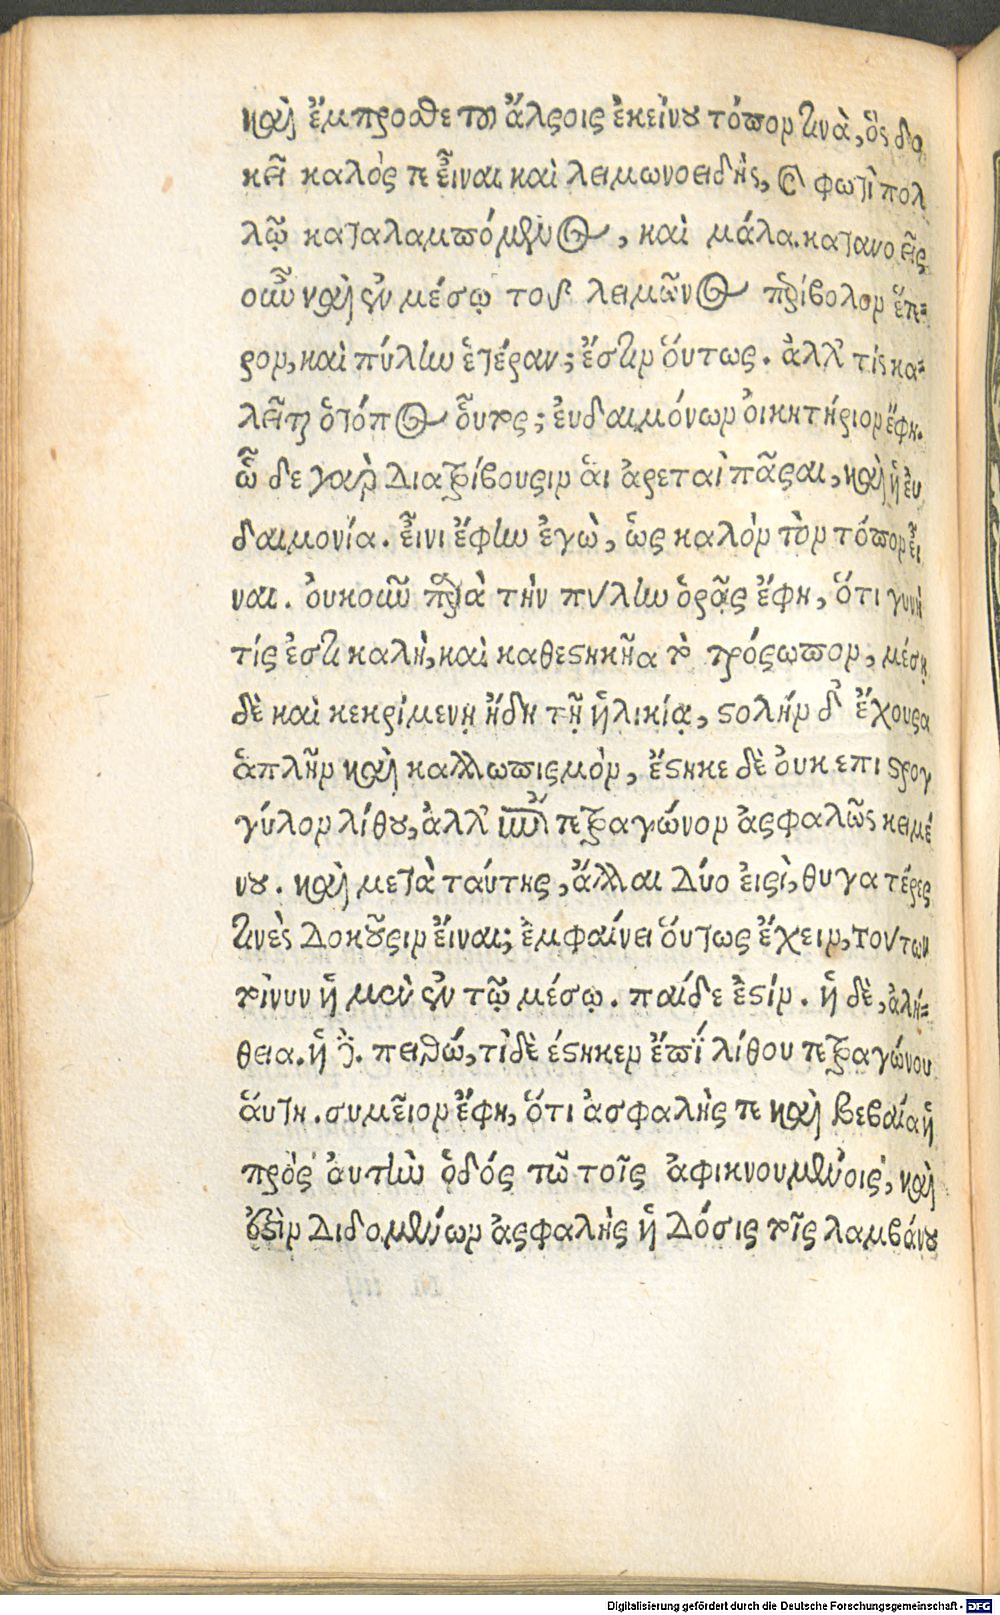 καὶ ἔμπροσθε τοῦ ἄλσοις ἐκείνου τόπον τινὰ, ὃς δο
κεῖ καλός τε εἶναι καὶ λειμωνοειδὴς, καὶ φωτὶ πολ
λῷ καταλαμπόμενος, καὶ μάλα. κατανοεῖς
οὖν καὶ ἐν μέσῳ τοῦ λειμῶνος πρίβολον ἕτε-
ρον, καὶ πύλην ἑτέραν; ἔστιν ὅυτως. ἀλλὰ τίς κα-
λεῖται ὁ τόπος οὗτος; ἐυδαιμόνων ὀικητήριον ἔφη.
ὧδε γὰρ διατρίβουσιν ἁι ἀρεταὶ πᾶσαι, καὶ ἡ ἐυ
δαιμονία. εἶινι ἔφην ἐγὼ, ὡς καλὸν τὸν τόπον εἶ
ναι. ὀυκοῦν παρὰ τὴν πύλην ὁρᾷς ἔφη, ὅτι γυνή
τίς ἐστι καλὴ, καὶ καθεστηκῆα τὸ πρόσωπον, μέση
δὲ καὶ κεκριμένῃ ἤδη τῇ ἡλικίᾳ, στολήν δ' ἔχουσα
ἁπλῆν καὶ καλλωπισμὸν, ἕστηκε δὲ ὀυκ επι στρογ
γύλον λίθου, ἀλλ' ἐπὶ τετραγώνον ἀσφαλῶς κειμέ
νου. καὶ μετὰ ταύτης, ἄλλαι δύο εἰσὶ, θυγατέρες
τινὲς δοκοῦσιν εἶναι; ἐμφαίνει ὅυτως ἔχειν, τούτων
τοίνυν ἡ μὲν ἐν τῷ μέσῳ. παίδε ἐστίν. ἡ δὲ, ἀλή-
θεια. ἡ δὲ. πειθώ, τὶ δὲ ἕστηκεν ἔπὶ λίθου τετραγώνου
ἅυτη. σημεῖιον ἔφη, ὅτι ἀσφαλής τε καὶ βεβαία ἡ
πρὸς ἀυτὴν ὁδός τῶ τοῖς ἀφικνουμένοις, καὶ
διδομένων ἀσφαλὴς ἡ δόσις τοῖς λαμβάνου